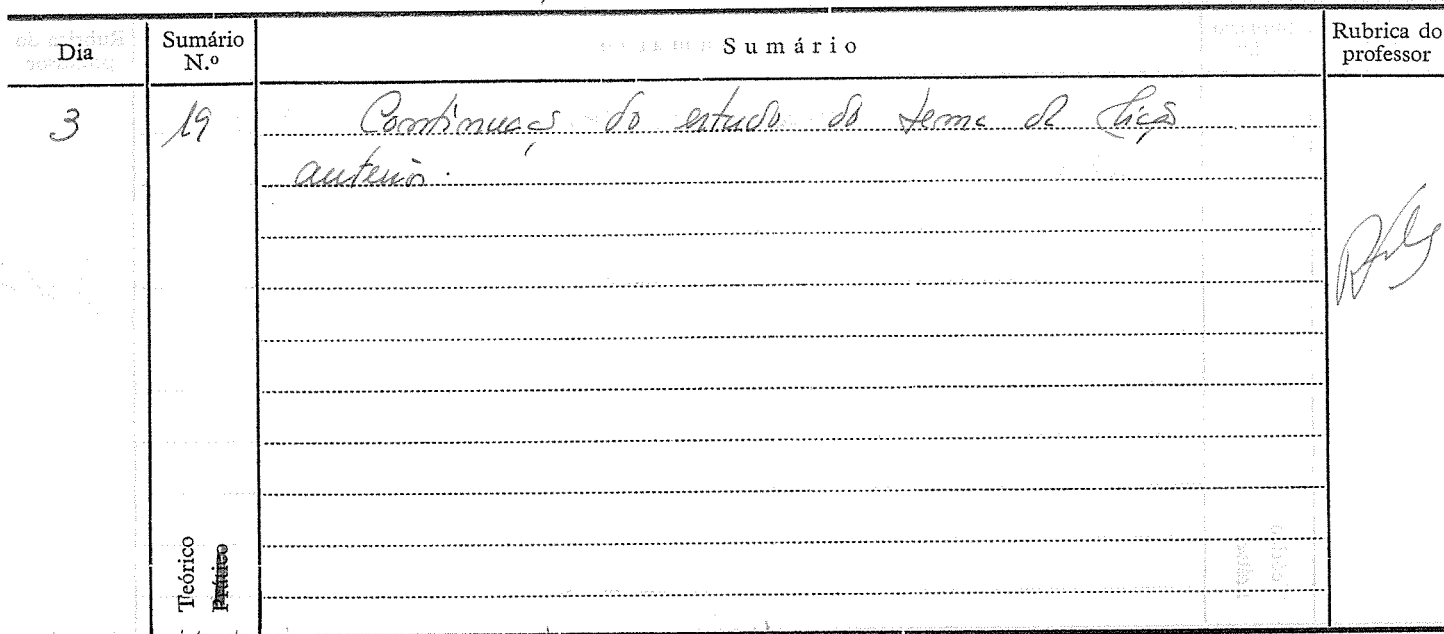 Dia
Sumário N.º
Sumário
Rubrica do professor
3 19 Continuação do estudo do tema da lição
anterior.
Teórico
Prático